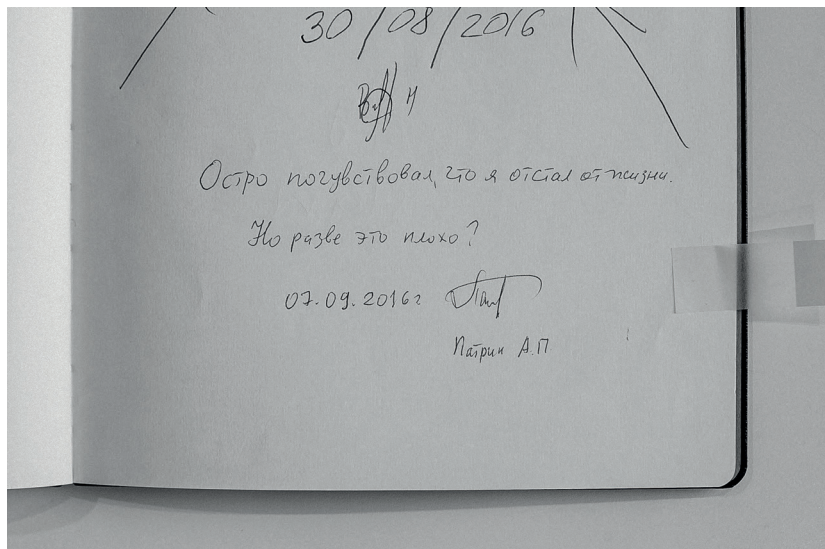 30/08/2016
Остро почувствовал, что я отстал от жизни.
Но разве это плохо?
07.09.2016г
Патрин А.П